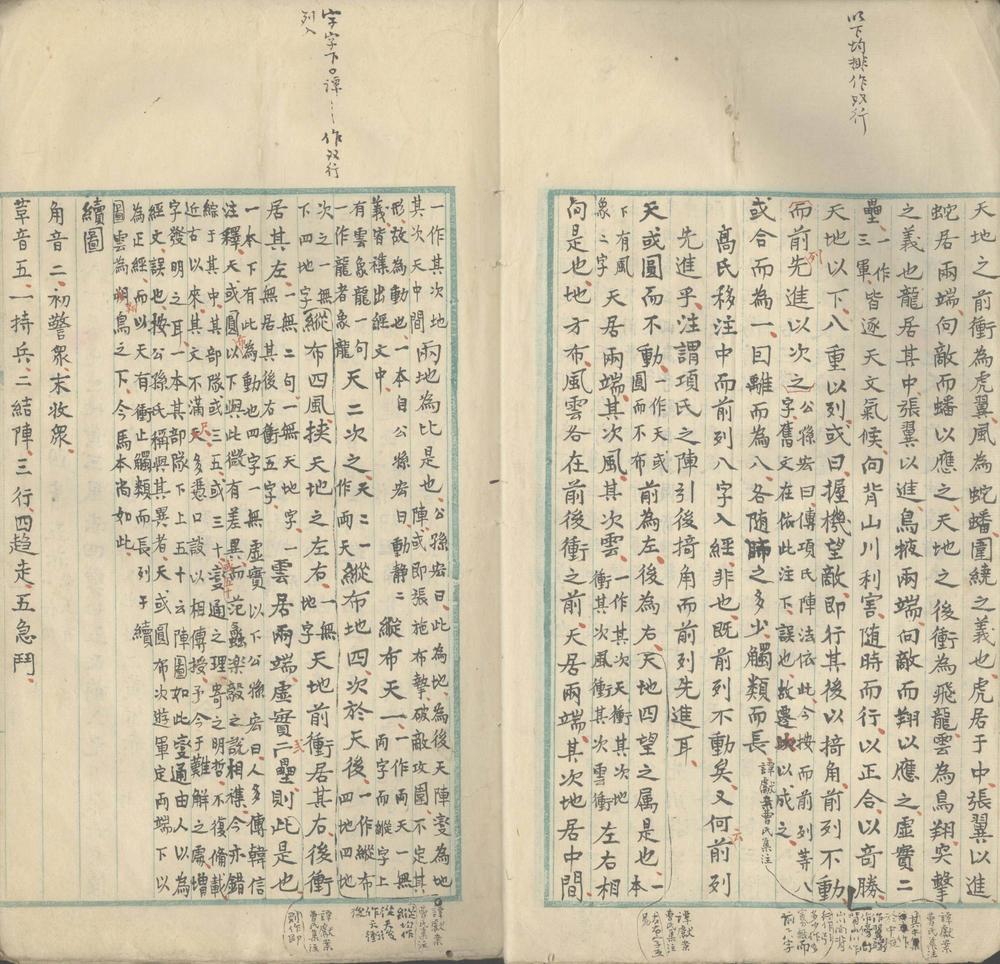 以下均排作双行
天地之前衝為虎翼風為蛇蟠圍繞之義也虎居于中張翼以進
蛇居兩端向敵而蟠以應之天地之後衝為飛龍雲為鳥翔突擊
之義也龍居其中張翼以進鳥掖兩端向敵而翔以應之虛實二
壘一作三軍皆逐天文氣候向背山川利害隨時而行以正合以奇勝
天地以下八重以列或曰握機望敵即行其後以掎角前列不動
而前先進以次之公孫宏曰傳項氏陣法依此今按而前列等八
字舊文在依此注下誤也故遷次以成之
或合而為一曰離而為八各随師之多少觸類而長譚獻案曹氏集注
高氏移注中而前列八字入經非也既前列不動矣又何前列
先進乎注謂項氏之陣引後掎角而前列先進耳
天或圓而不動一作天或圓而不布前為左後為右天地四望之属是也本一
下有風象二字天居兩端其次風其次雲一作其次天衝其次地衝其次風衝其次雲衝左右相
向是也地方布風雲各在前後衝之前天居兩端其次地居中間
譚獻案
曹氏集注
譚獻案
曹氏集注
字字下〇譚⋯⋯作双行
列入
一作其次地兩地為比是也公孫宏曰此為地為後天陣變為地
其次天中間陣或即張施布擊破敵攻圍不定其
形故為動也一本自公孫宏日動静二縱布天一一作兩天一無
義皆襍出經文中
有雲象龍一句天二次之天二一作兩天縱布地四次於天後一作縱布
一作龍者象龍
次之一無縱布四風挟天地之左右一無地字天地前衝居其右後衝
下四地字
居其左一無二句一無天地字一雲居兩端虛實二壘則此是也
一無居其後右衝五字
一本下有此為動也四字一無虛實以下公孫宏曰人多傳韓信
注釋天或圓以下與此微有差異而范蠡樂毅之說相襍今亦錯
綜于其中其部隊或三五或三十變通之理寄之明哲不復備載
近古以來其文不滿尺多憑口訣以相傳授予今于難解之處增
字發明之耳一本其部隊下上五十云陣圖如此變通由人以為
經文誤也按公孫氏稱與其異者天或圓布次遊軍定兩端下以
為正經而以天有衝止觸類而長列于續
圖雲為翔鳥之下今馬本尚如此
續圖
角音二初警衆末收衆
革音五一持兵二結陣三行四趨走五急鬥
譚獻案
曹氏集注
譚獻案
曹氏集注
則作即